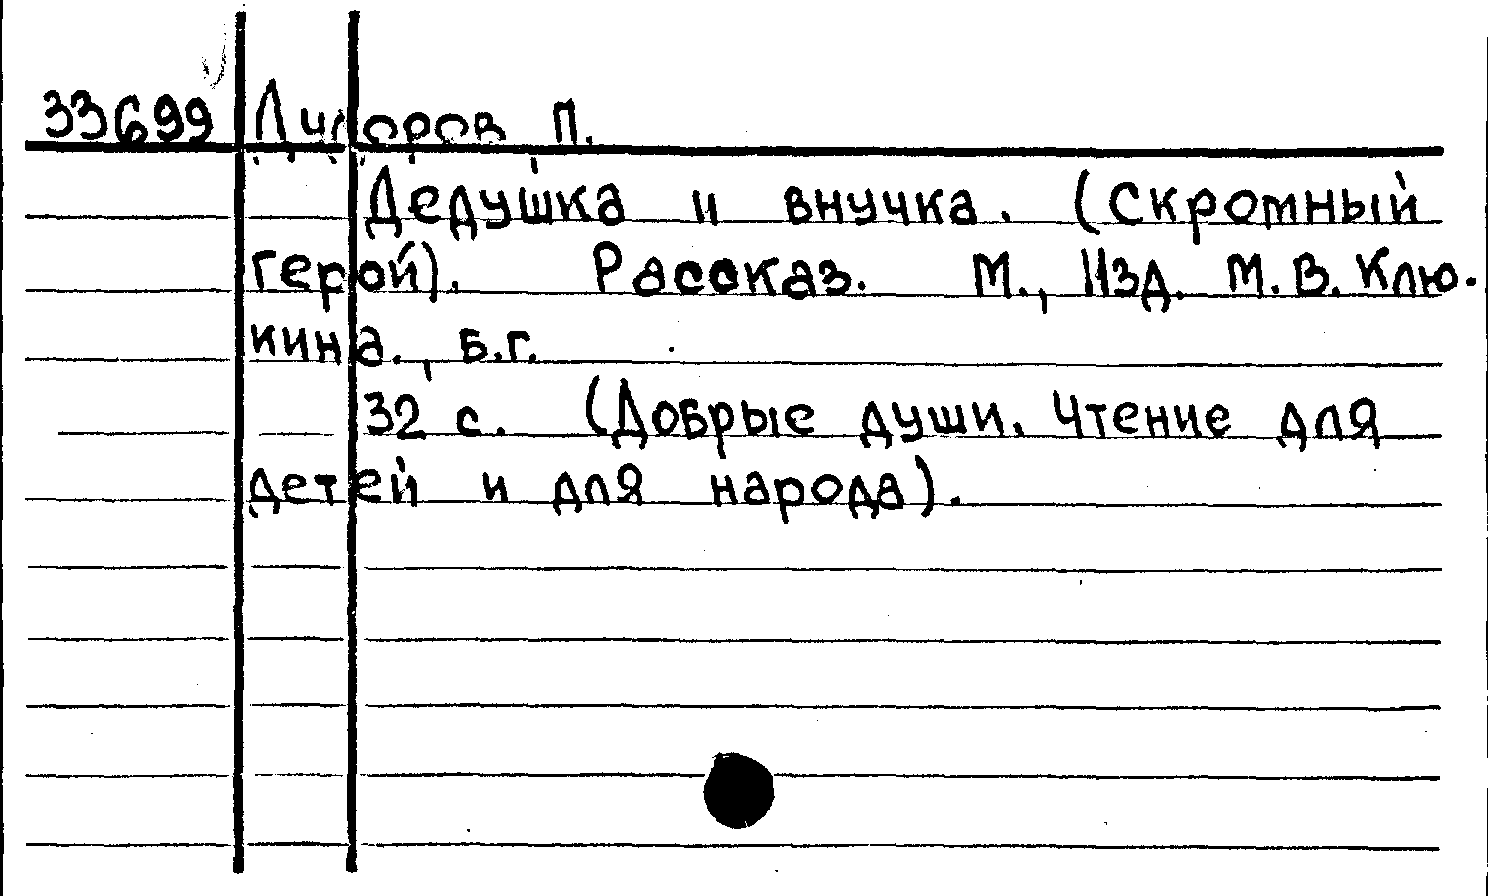 33699 П.
Дедушка и внучка. (Скромный
герой). Рассказ. М., Изд. М.В. Клю-
кина., б.г.
32 с. (Добрые души. Чтение для
детей и для народа).